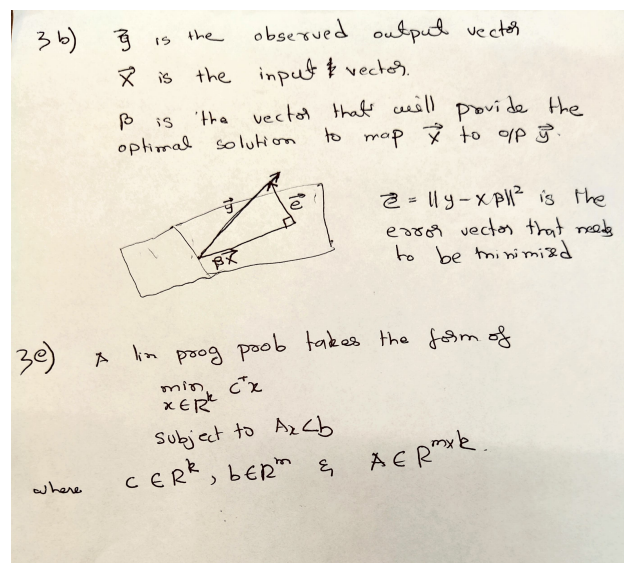 3b) y⃗ is the observed output vector
x⃗ is the input vector.
β is the vector that will provide the
optimal solution to map x⃗ to o/p y⃗.
y⃗
e⃗
βx⃗
e⃗ = ||y - xβ||² is the
error vector that needs
to be minimized
3e) A lin prog prob takes the form of
min cᵀx
x∈Rᵏ
subject to Ax<b
where c ∈ Rᵏ, b∈Rᵐ & A ∈ Rᵐˣᵏ.